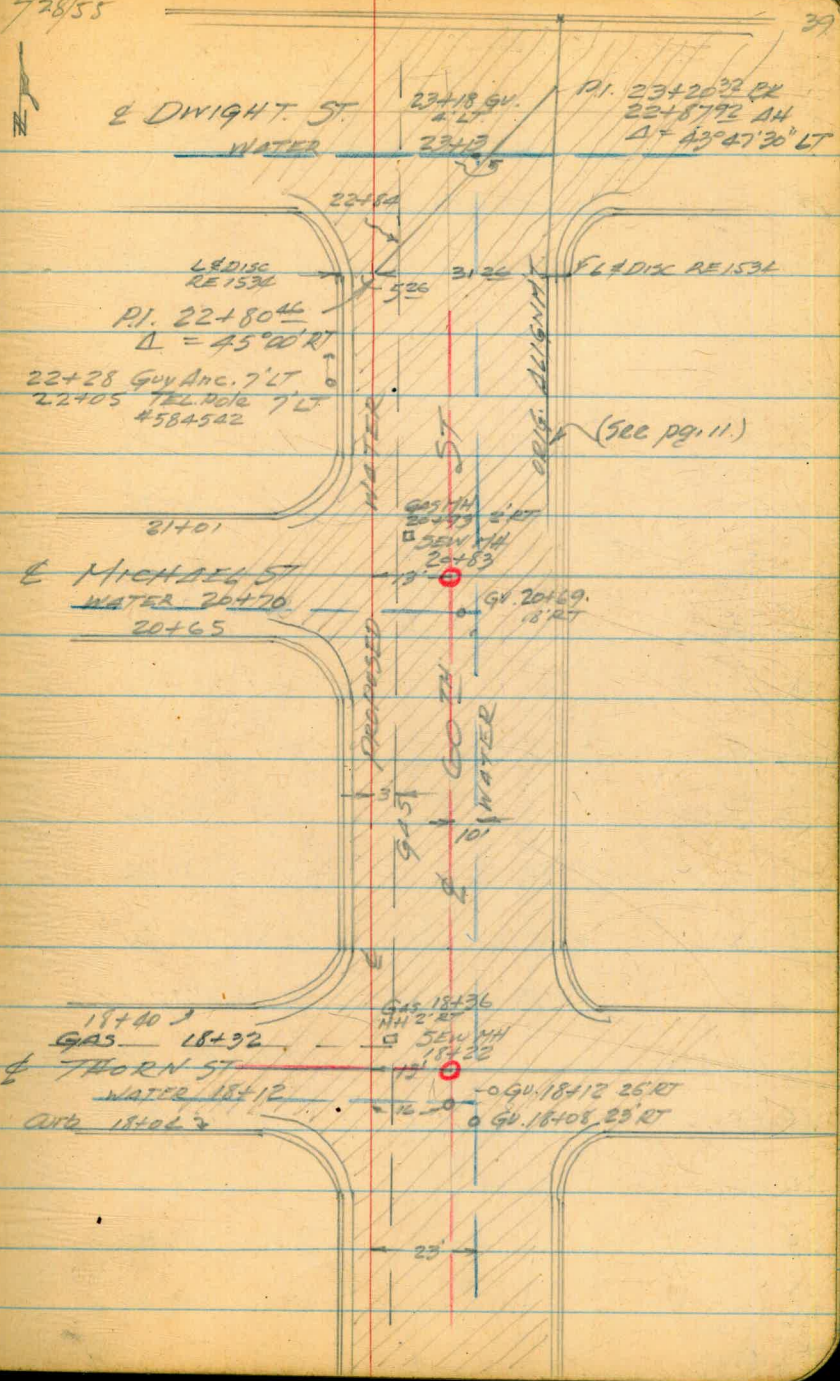 7/28/55
39
℄ DWIGHT. ST.
WATER
23+18 GV.
4' LT
23+13
5
P.I. 23+20³² BK
22+87⁹² AH
Δ = 43°47'30" LT
22+84
L & DISC
RE 1534
5²⁶
31²⁶
L & DISC RE 1534
P.I. 22+80⁴⁶
Δ = 45°00' RT
22+28 Guy Anc. 7' LT
22+05 TEL. Pole 7' LT
#584542
ORIG. ALIGNMT.
(See pg. 11.)
21+01
GAS MH
2' RT
SEW MH
20+83
13'
℄ MICHAEL ST
WATER 20+70
20+65
GV. 20+69.
18' RT
℄ PROPOSED WATER
℄ 60TH ST
GAS
WATER
3
10'
18+40
GAS 18+32
Gas 18+36
MH 2' RT
SEW MH
18+22
℄ THORN ST
13'
WATER 18+12
16
GV. 18+12 26' RT
GV. 18+08, 23' RT
Curb 18+02
23'